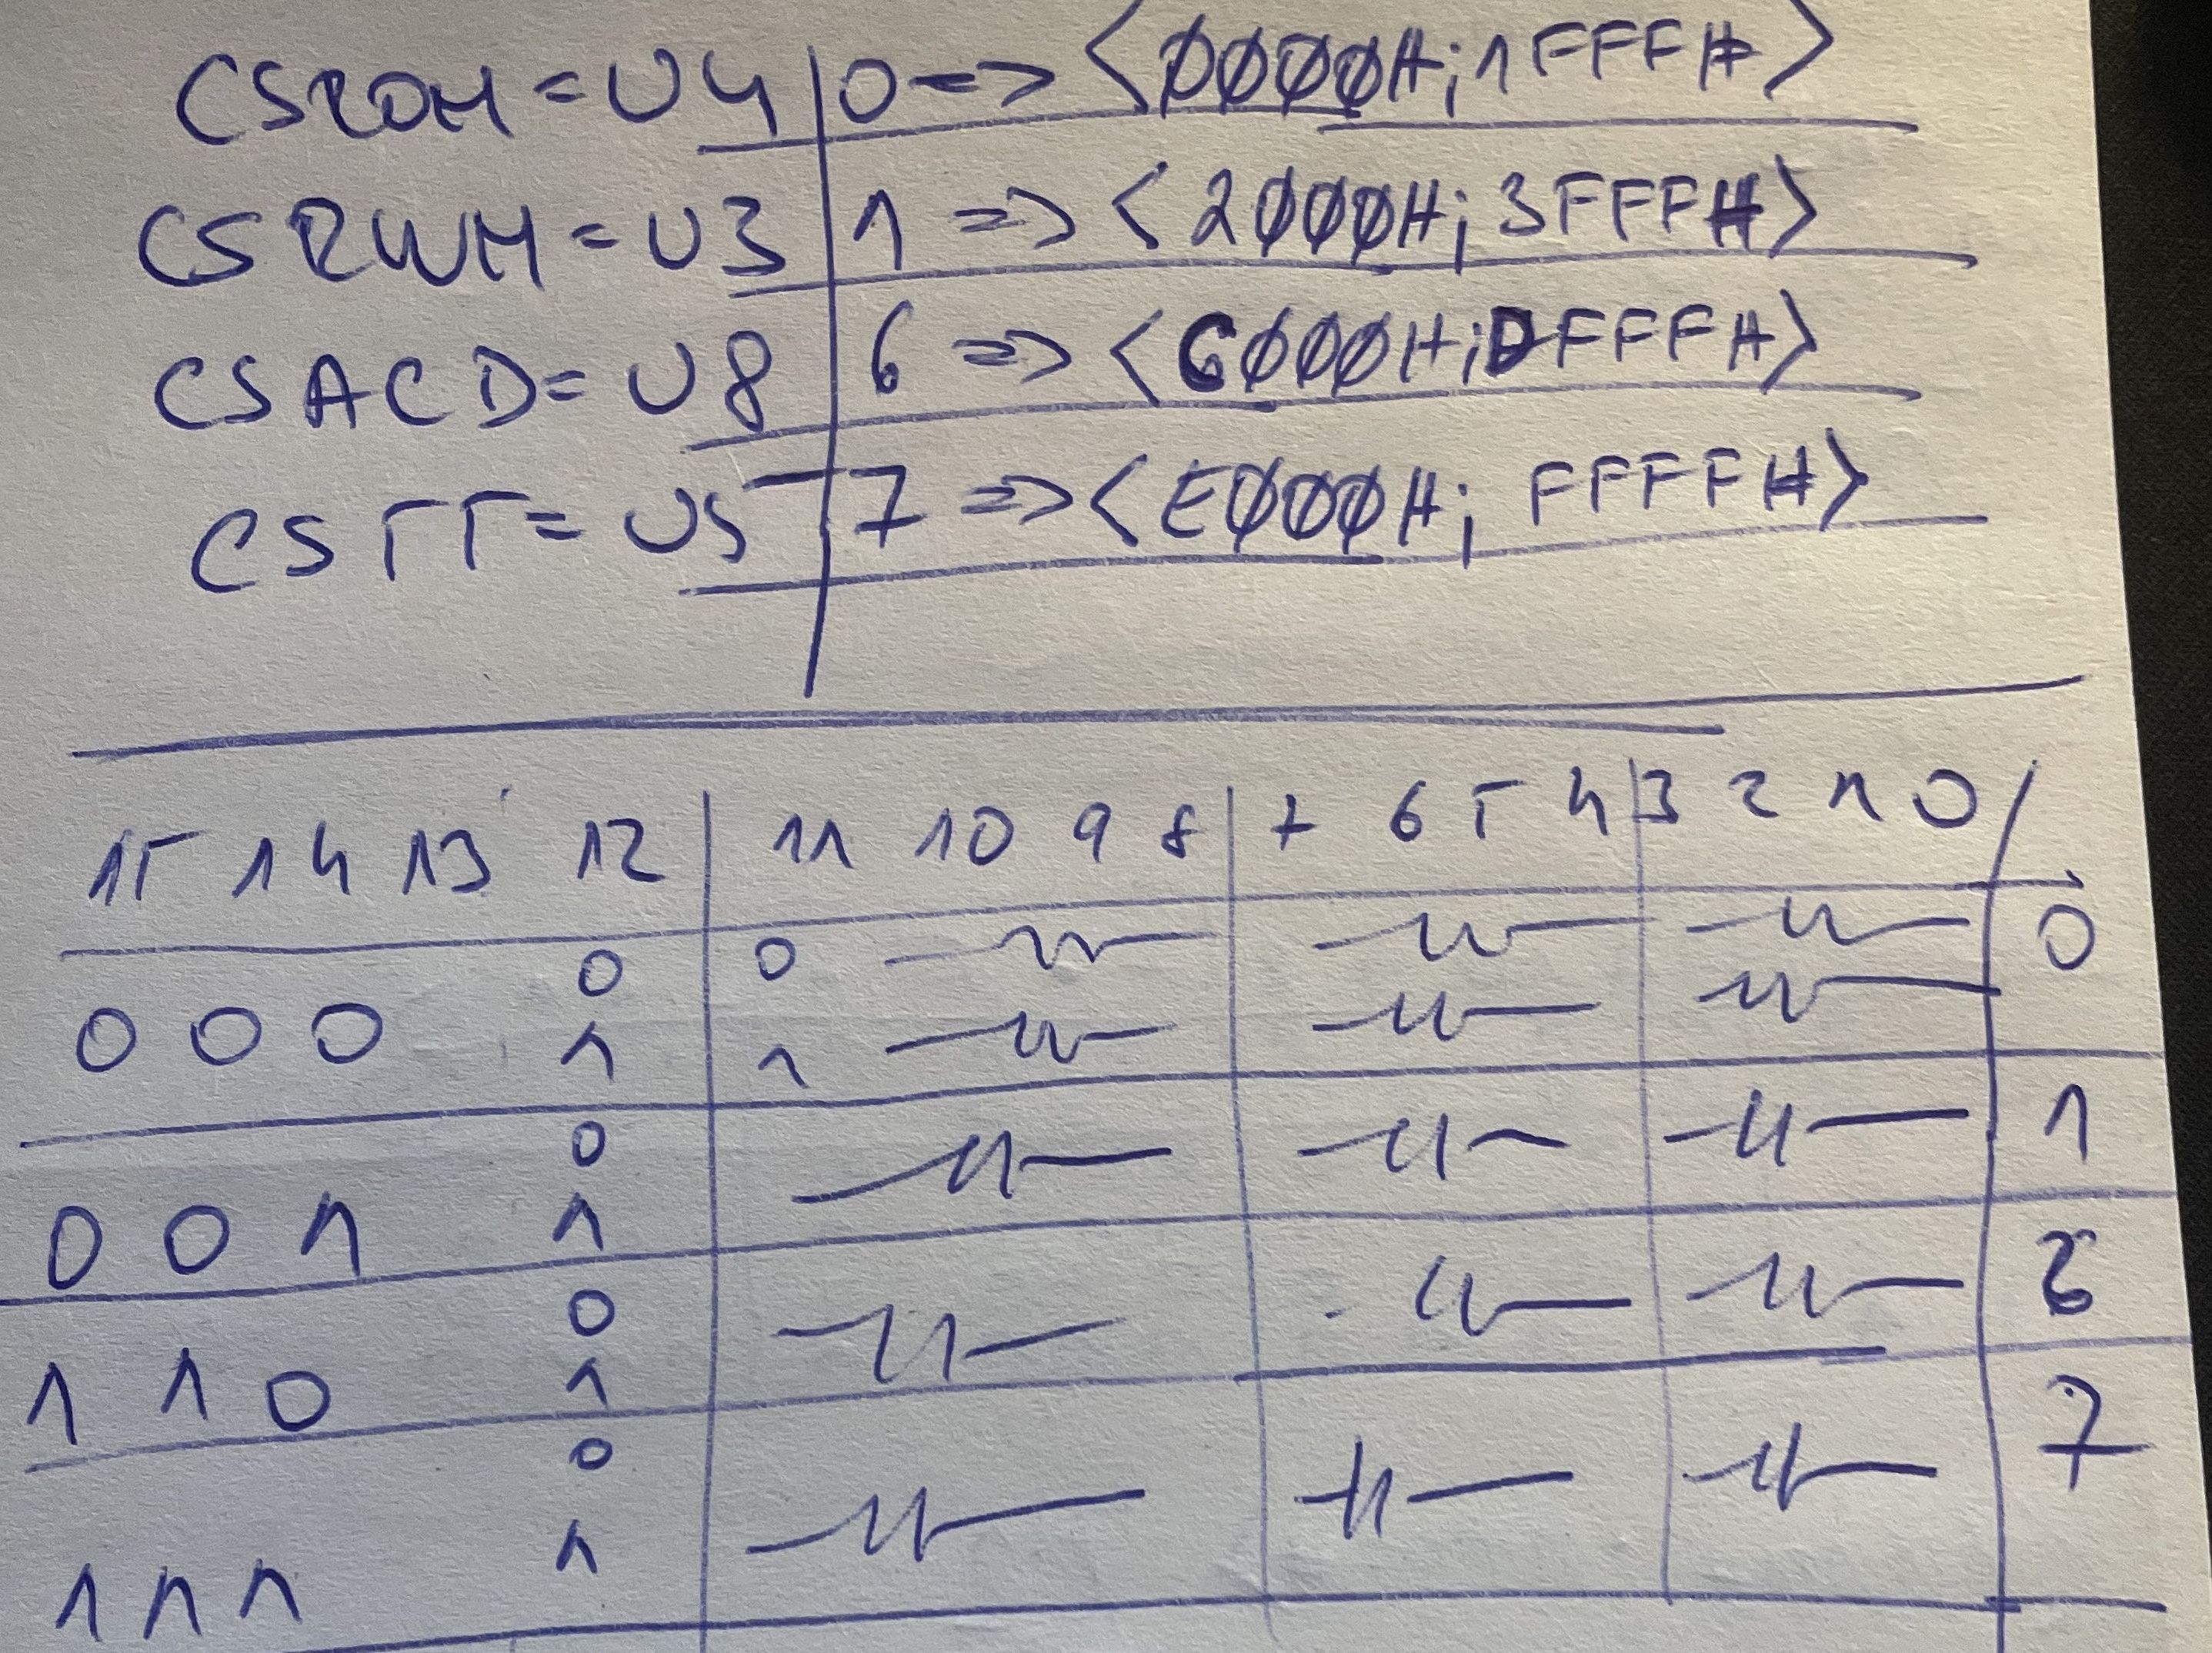 CSROM = U4 | 0 => <0000H; 1FFFH>
CSRWM = U3 | 1 => <2000H; 3FFFH>
CSACD = U8 | 6 => <C000H; DFFFH>
CSTT = U5 | 7 => <E000H; FFFFH>
15 14 13 12 | 11 10 9 8 | 7 6 5 4 | 3 2 1 0 /
0 | 0 —〃— | —〃— | —〃— | 0
0 0 0 1 | 1 —〃— | —〃— | —〃—
0 | —〃— | —〃— | —〃— | 1
0 0 1 1
0 | —〃— | —〃— | —〃— | 6
1 1 0 1
0 | —〃— | —〃— | —〃— | 7
1 1 1 1